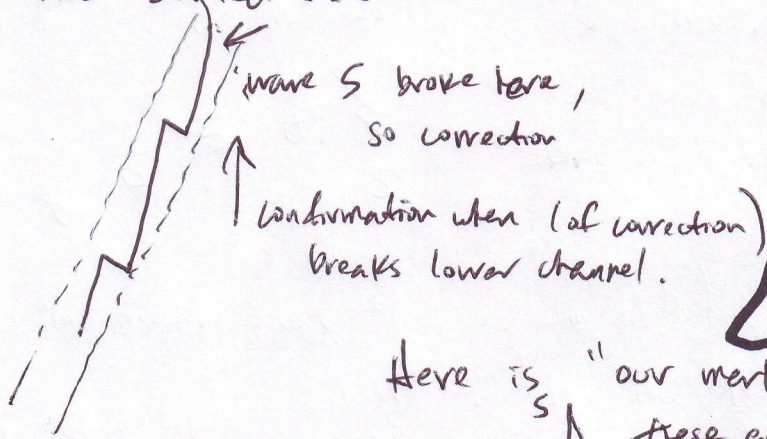 wave 5 broke here,
so correction
confirmation when (of correction)
breaks lower channel.
Here is "our
5
these